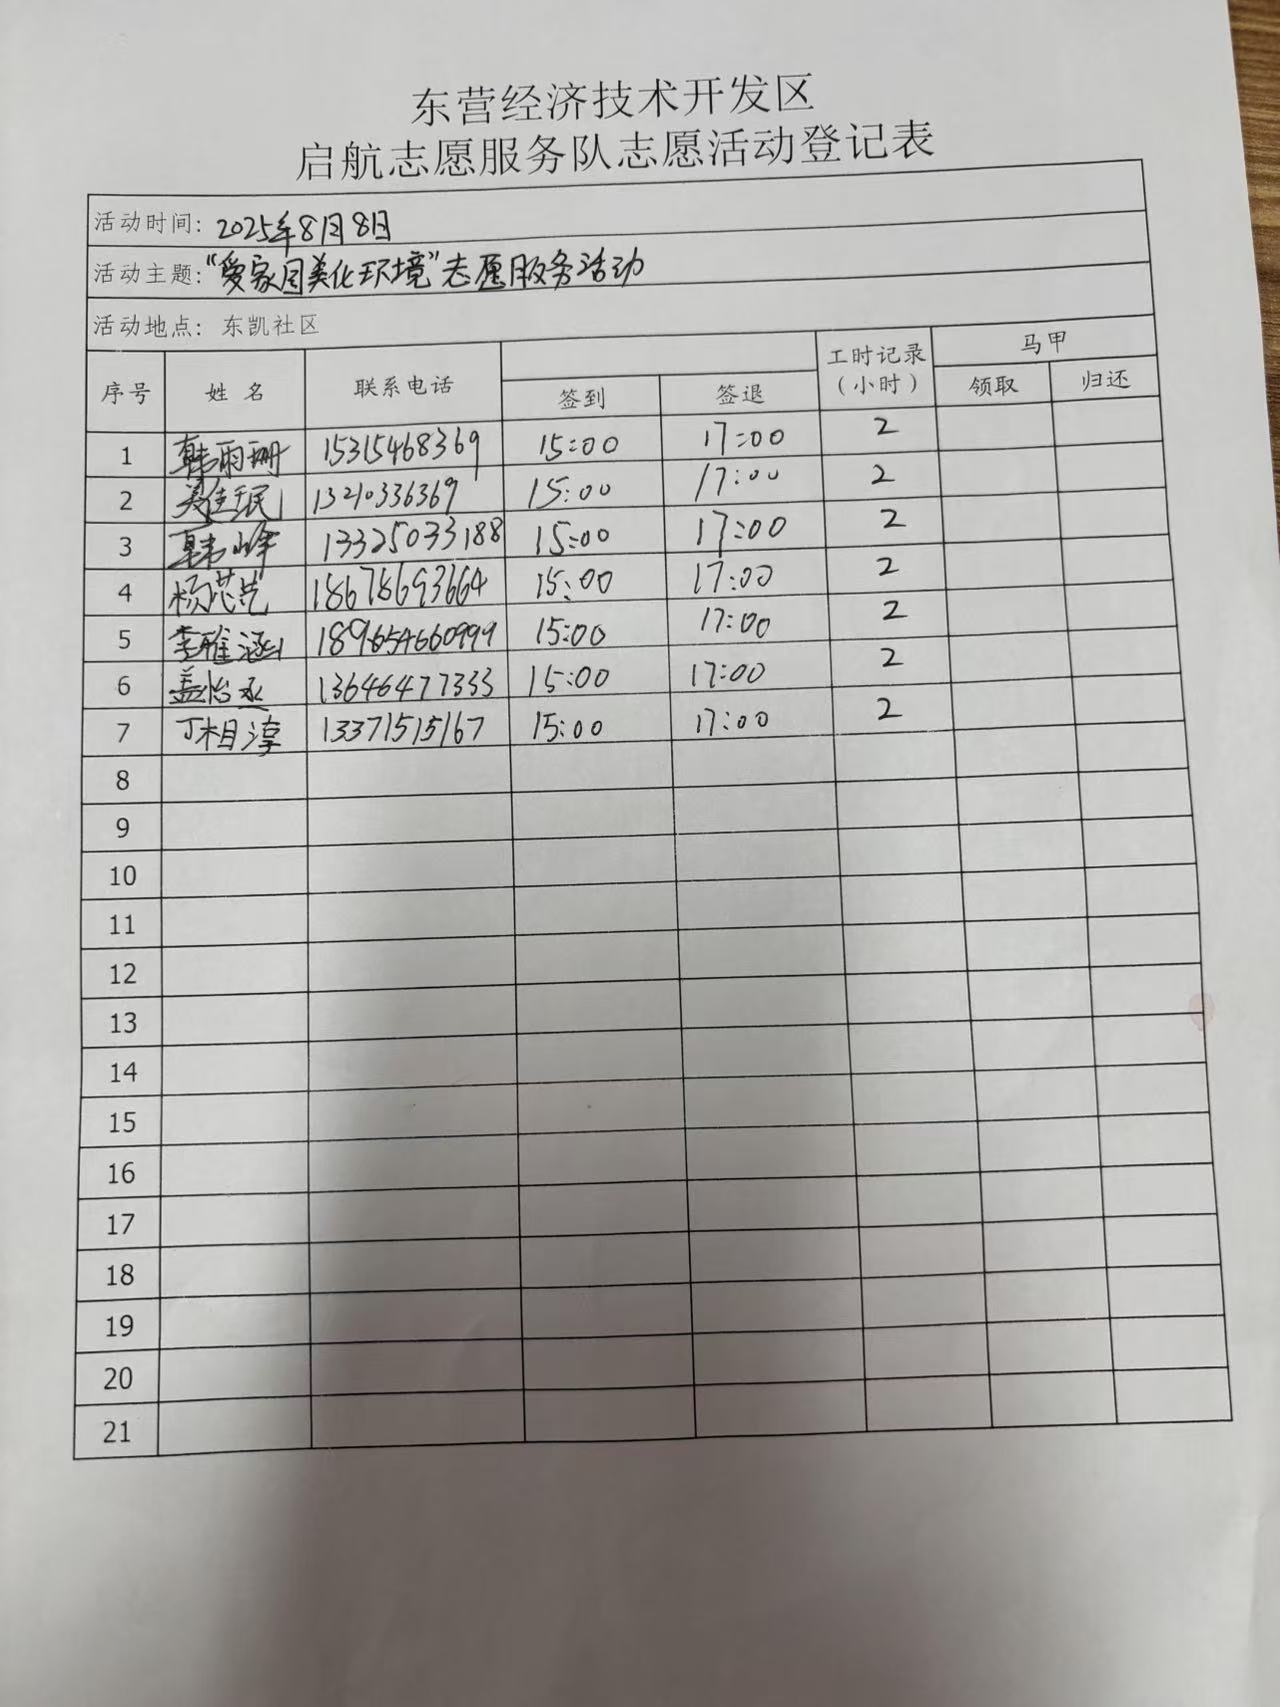 东营经济技术开发区
启航志愿服务队志愿活动登记表
活动时间: 2025年8月8日
活动主题: "爱家园美化环境"志愿服务活动
活动地点: 东凯社区
序号 姓名 联系电话 签到 签退 工时记录(小时) 马甲 领取 归还
1 韩雨珊 15315468369 15:00 17:00 2
2 姜佳珉 13210336369 15:00 17:00 2
3 韩峰 13325033188 15:00 17:00 2
4 杨芯艺 18678693664 15:00 17:00 2
5 李雅涵 189654660999 15:00 17:00 2
6 盖怡丞 13646477333 15:00 17:00 2
7 丁相淳 13371515167 15:00 17:00 2
8
9
10
11
12
13
14
15
16
17
18
19
20
21